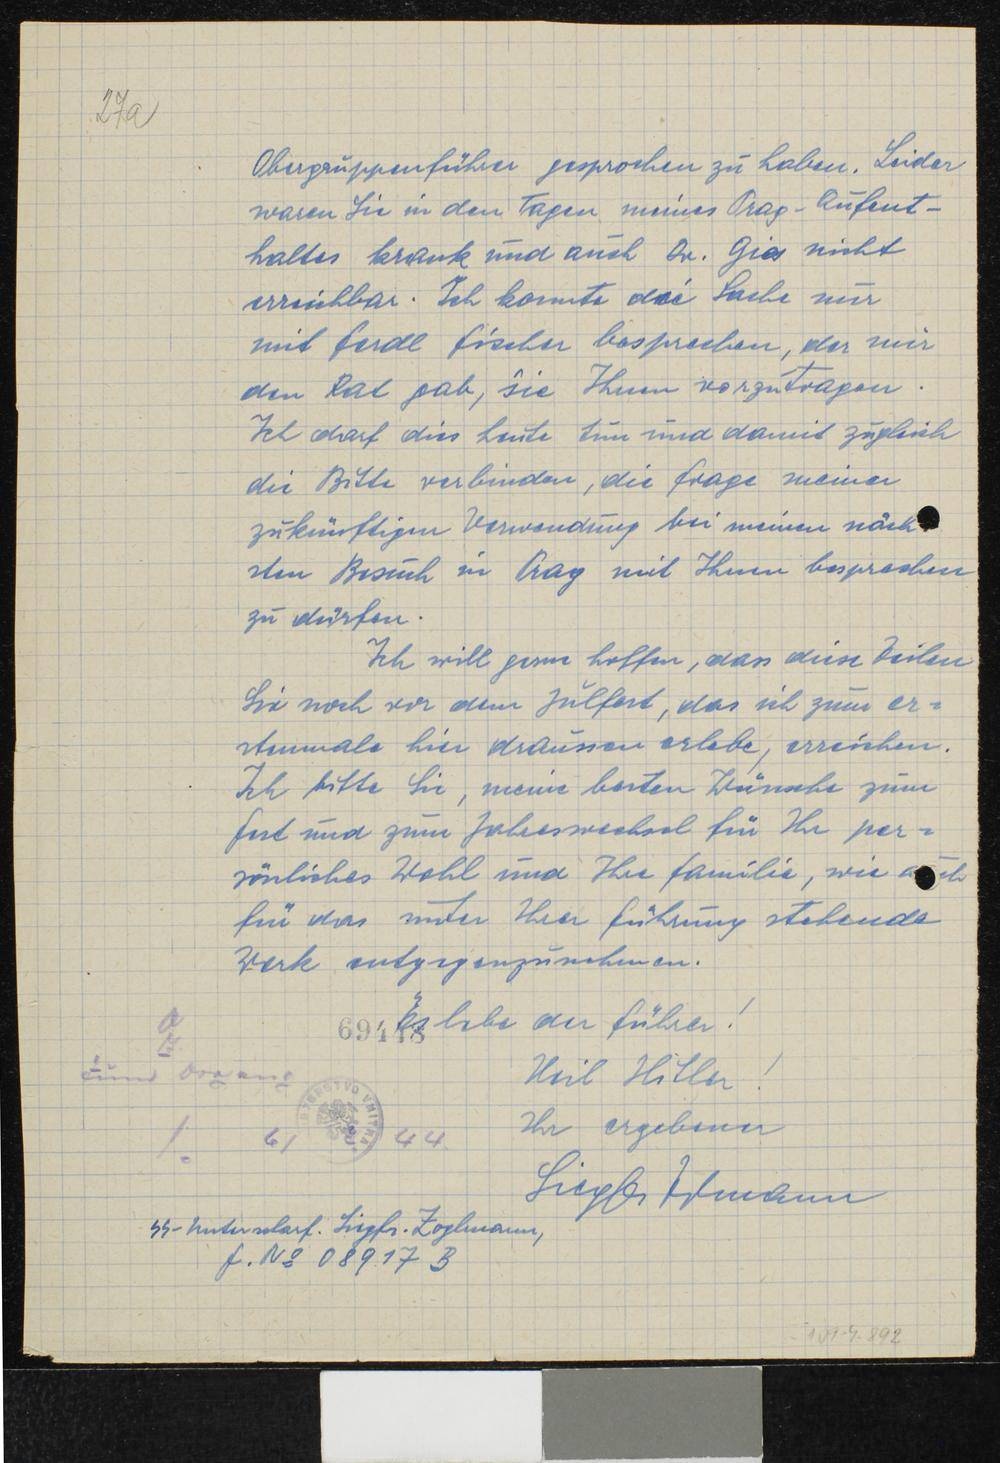 27a
Obergruppenführer gesprochen zu haben. Leider
waren Sie in den Tagen meines Prag-Aufent-
haltes krank und auch Dr. Gies nicht
erreichbar. Ich konnte die Sache nur
mit Ferdl Fischer besprechen, der mir
den Rat gab, sie Ihnen vorzutragen.
Ich darf dies heute tun und damit zugleich
die Bitte verbinden, die Frage meiner
zukünftigen Verwendung bei meinem näch
sten Besuch in Prag mit Ihnen besprechen
zu dürfen.
Ich will gerne hoffen, dass diese Zeilen
Sie noch vor dem Julfest, das ich zum er=
stenmale hier draussen erlebe, erreichen.
Ich bitte Sie, meine besten Wünsche zum
Fest und zum Jahreswechsel für Ihr per=
sönliches Wohl und Ihre Familie, wie auch
für das unter Ihrer Führung stehende
Werk entgegenzunehmen.
Es lebe der Führer!
69448
Heil Hitler!
Ihr ergebener
Siegfr. Zoglmann
VNITRA
SS-Unterscharf. Siegfr. Zoglmann,
F. No 08917 B
101-4-892